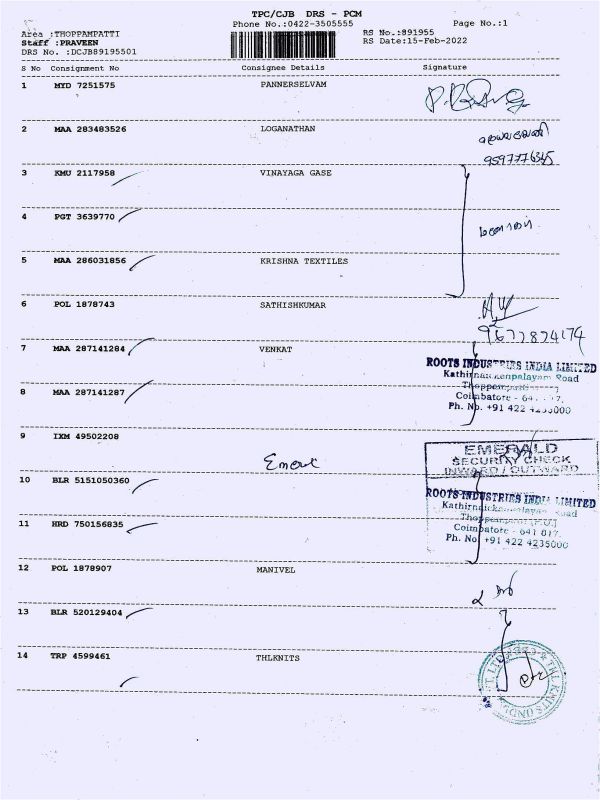 TPC/CJB DRS - PCM
Phone No.:0422-3505555 Page No.:1
Area :THOPPAMPATTI RS No.:891955
Staff :PRAVEEN RS Date:15-Feb-2022
DRS No. :DCJB89195501
S No Consignment No Consignee Details Signature
1 MYD 7251575 PANNERSELVAM
2 MAA 283483526 LOGANATHAN
9597776345
3 KMU 2117958 VINAYAGA GASE
4 PGT 3639770
5 MAA 286031856 KRISHNA TEXTILES
6 POL 1878743 SATHISHKUMAR
9677874174
7 MAA 287141284 VENKAT
ROOTS INDUSTRIES INDIA LIMITED
Road
8 MAA 287141287
Coimbatore -
Ph. No. +91 422 4235000
9 IXM 49502208
EMERALD
SECURITY CHECK
INWARD / OUTWARD
10 BLR 5151050360
ROOTS INDUSTRIES INDIA LIMITED
Road
11 HRD 750156835
Coimbatore - 641 017.
Ph. No +91 422 4235000
12 POL 1878907 MANIVEL
13 BLR 520129404
14 TRP 4599461 THLKNITS
THL KNITS